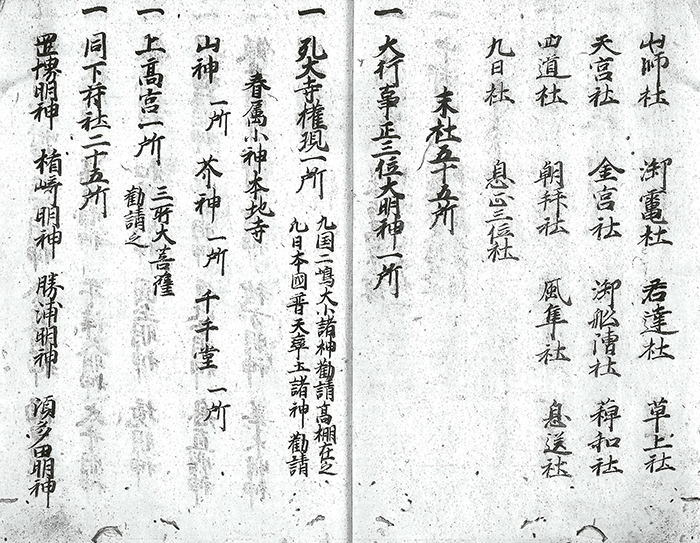 山師社 社 君達社 草上社
天宮社 金宮社 御舩漕社 和社
四道社 朝拜社 風隼社 息送社
九日社 息正三位社
末社五十五所
一 大行事正三位大明神一所
一 孔大寺權現一所
九国二嶋大小諸神勸請髙棚在之
九日本國普天率土諸神勸請
春属小神本地寺
山神一所 芥神一所 千手堂一所
一 上髙宮一所
三所大菩薩
勸請之
一 同下符社二十五所
明神 楢﨑明神 勝浦明神 須多田明神